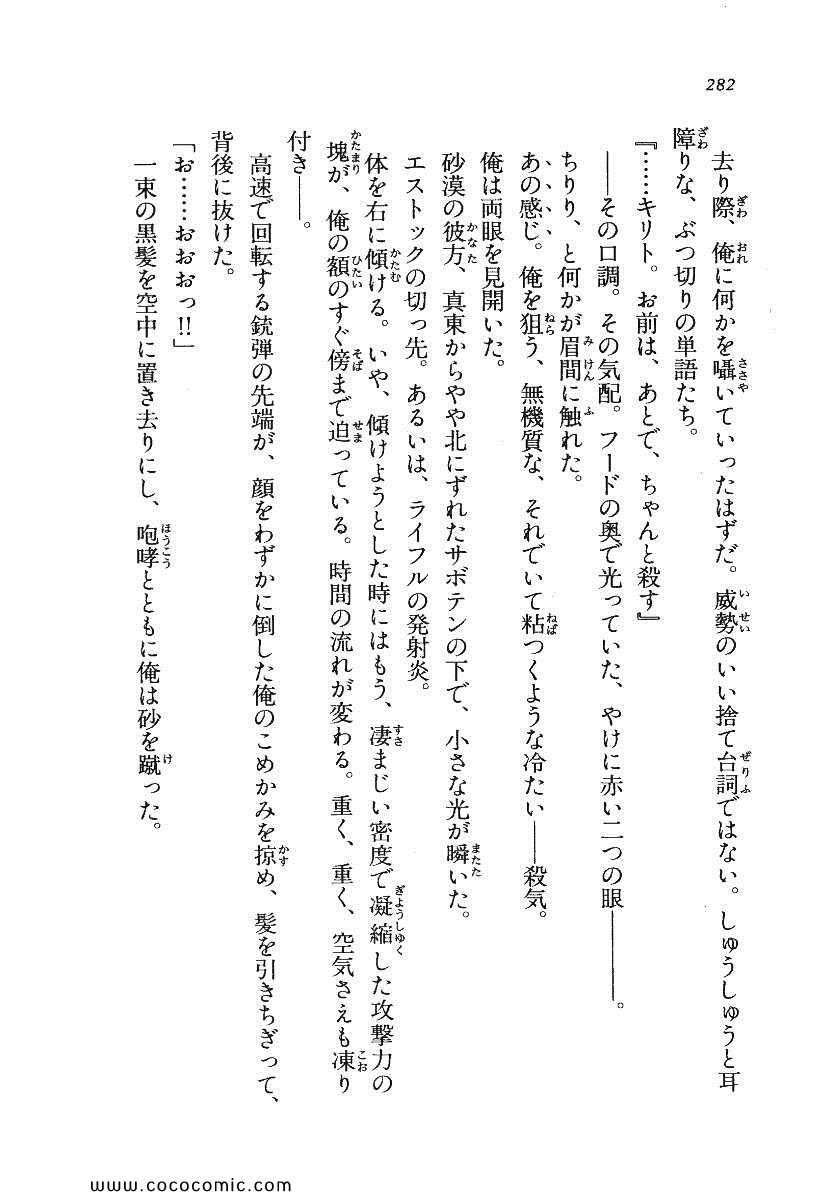 282
去り際、俺に何かを囁いていったはずだ。威勢のいい捨て台詞ではない。しゅうしゅうと耳
障りな、ぶつ切りの単語たち。
『……キリト。お前は、あとで、ちゃんと殺す』
――その口調。その気配。フードの奥で光っていた、やけに赤い二つの眼――――。
ちりり、と何かが眉間に触れた。
あの感じ。俺を狙う、無機質な、それでいて粘つくような冷たい――殺気。
俺は両眼を見開いた。
砂漠の彼方、真東からやや北にずれたサボテンの下で、小さな光が瞬いた。
エストックの切っ先。あるいは、ライフルの発射炎。
体を右に傾ける。いや、傾けようとした時にはもう、凄まじい密度で凝縮した攻撃力の
塊が、俺の額のすぐ傍まで迫っている。時間の流れが変わる。重く、重く、空気さえも凍り
付き――。
高速で回転する銃弾の先端が、顔をわずかに倒した俺のこめかみを掠め、髪を引きちぎって、
背後に抜けた。
「お……おおおっ!!」
一束の黒髪を空中に置き去りにし、咆哮とともに俺は砂を蹴った。
www.cococomic.com/